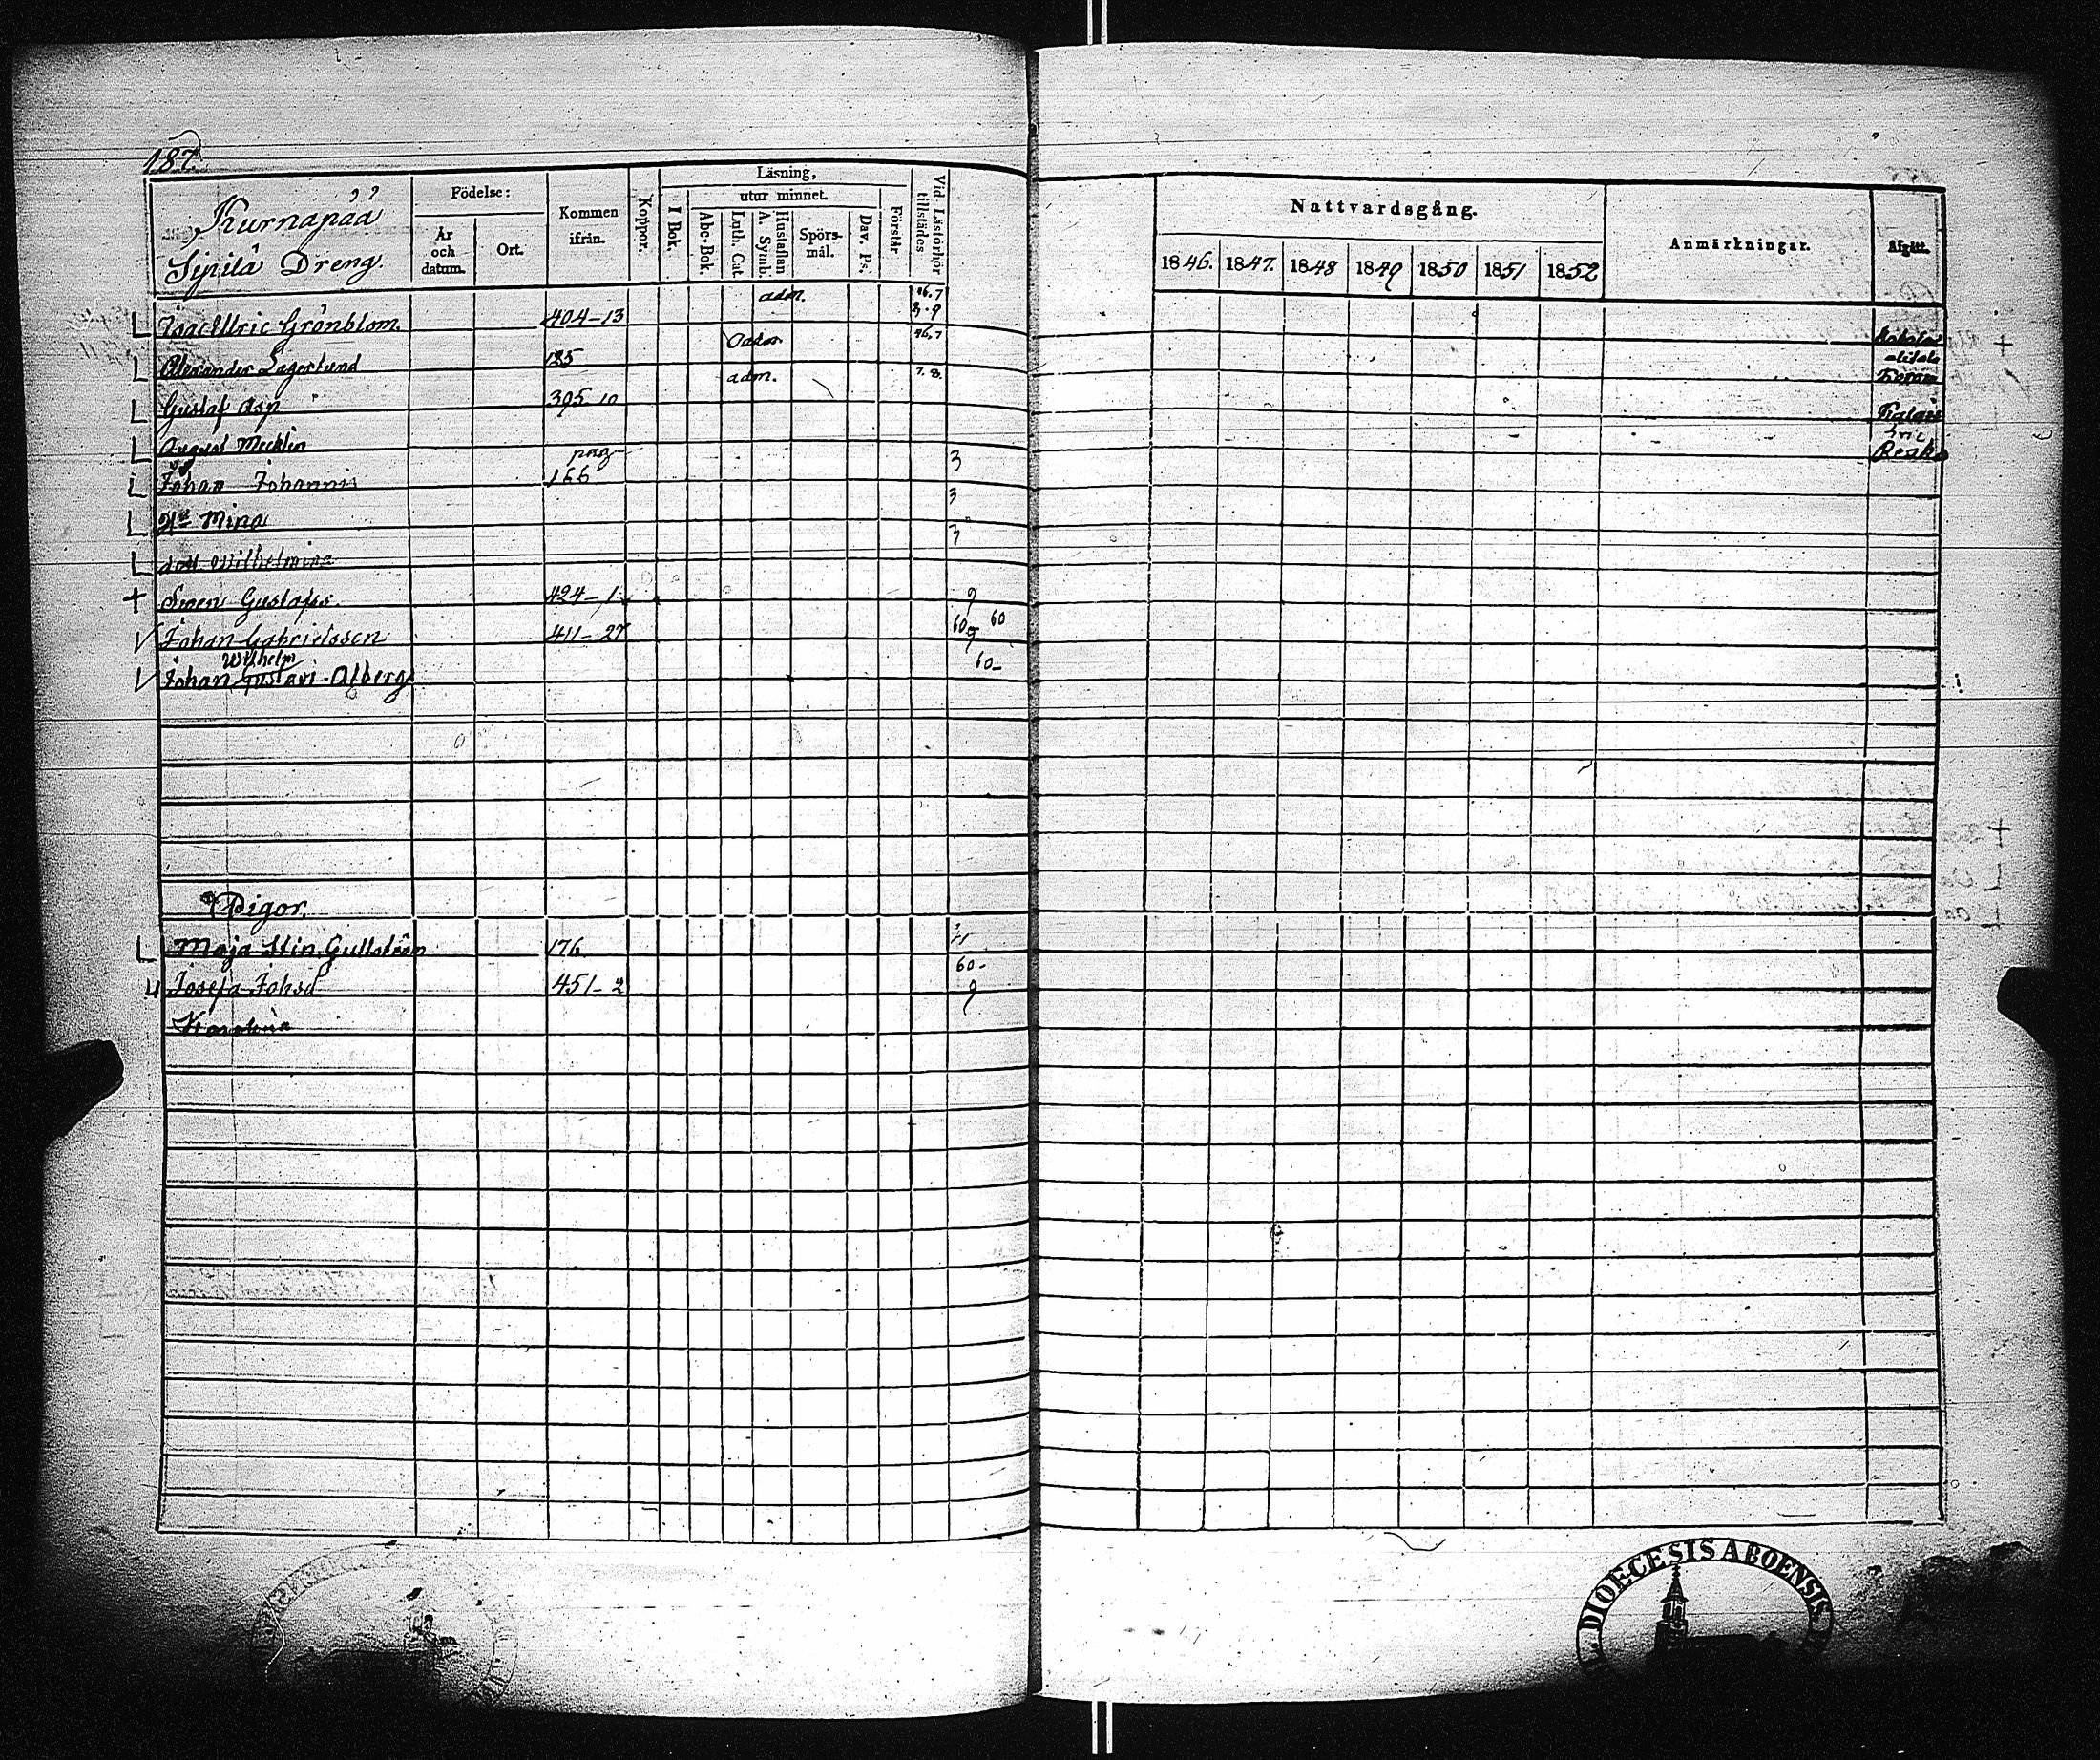 187.
Kurnapää
Sipilä Dreng.
Födelse:
År och datum.
Ort.
Kommen ifrån.
Koppor.
Läsning,
I Bok.
utur minnet.
Abc-Bok.
Luth. Cat.
Hustaflan A. Symb.
Spörsmål.
Dav. Ps.
Förstår
Vid Läsförhör tillstädes
Nattvardsgång.
1846. 1847. 1848 1849 1850 1851 1852
Anmärkningar.
Afgått.
Isac Ulric Grönblom. 404-13 adm. 46.7
Alexander Lagerlund 185 46,7
Gustaf Asp 395-10 adm. 7.8.
August Mecklin
Johan Johannis 166 3
Mina 3
dott. Wilhelmina 3
Sven Gustafss. 424-1 9
Johan Gabrielsson 411-27 60 60
Wilhelm
Johan Gustavi Alberg 60-
Pigor.
Maja Stin. Gullström 176
Josefa Johsd 451-2 60- 9
Karolina
DIOECESIS ABOENSIS